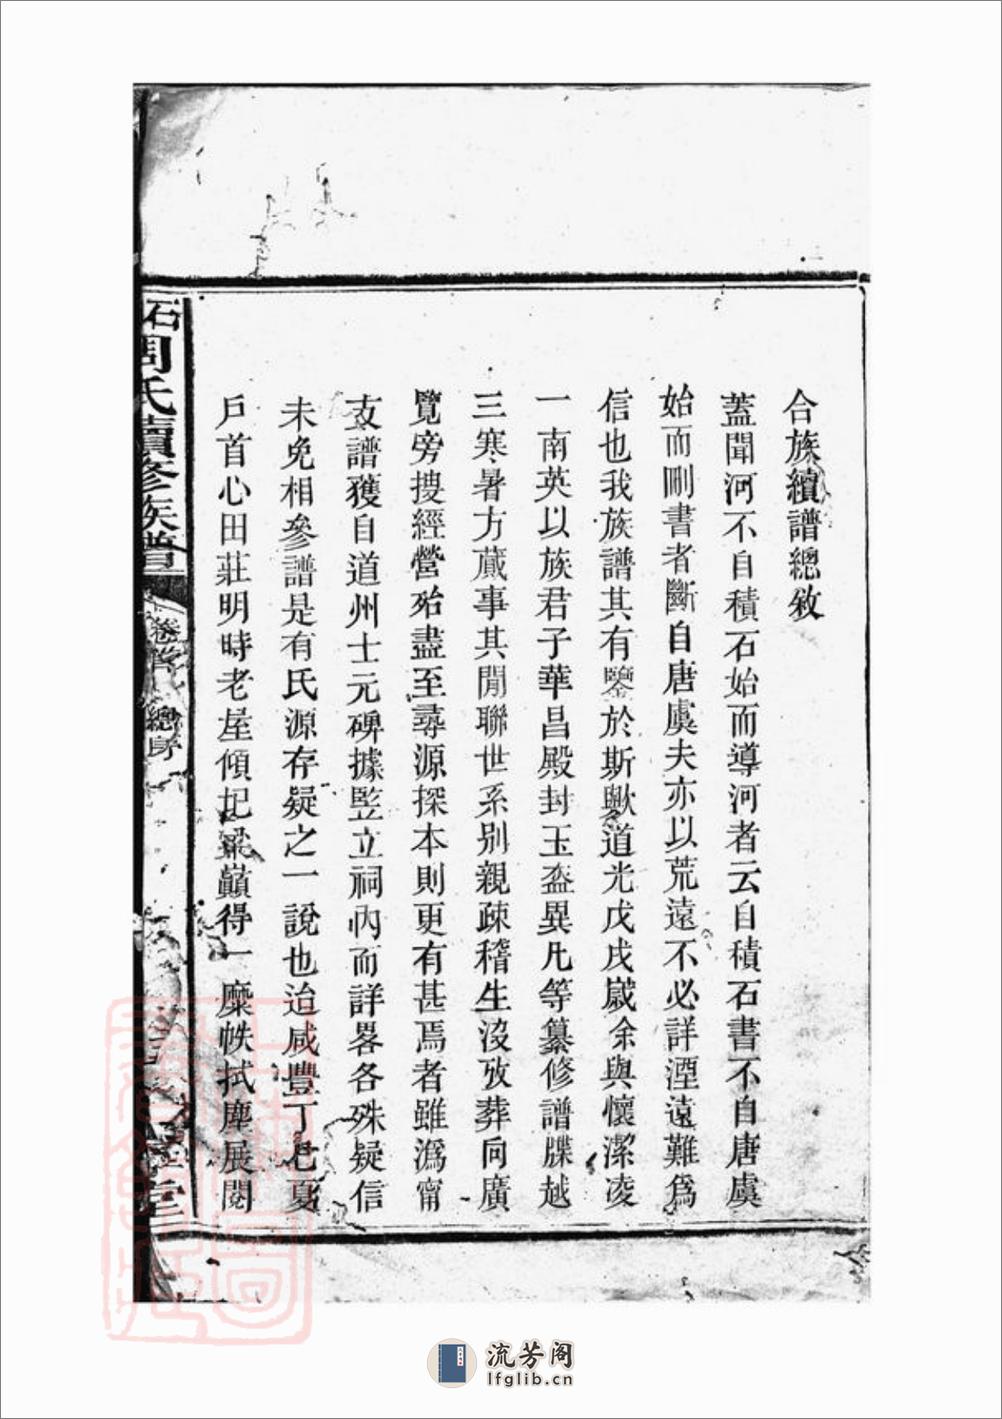 合族續譜總敘
蓋聞河不自積石始而導河者云自積石書不自唐虞
始而刪書者斷自唐虞夫亦以荒遠不必詳湮遠難為
信也我族譜其有鑒於斯歟道光戊戌嵗余與懷潔凌
一南英以族君子華昌殿封玉盉異凡等纂修譜牒越
三寒暑方蕆事其閒聯世系別親疎稽生沒攷葬向廣
覽旁捜經營殆盡至尋源探本則更有甚焉者雖溈甯
支譜獲自道州士元碑據竪立祠內而詳畧各殊疑信
未免相參譜是有氏源存疑之一說也迨咸豐丁巳夏
戶首心田莊明時老屋傾圮梁巔得一糜帙拭塵展閱
石周氏續修族譜
卷首
總序
流芳阁
lfglib.cn